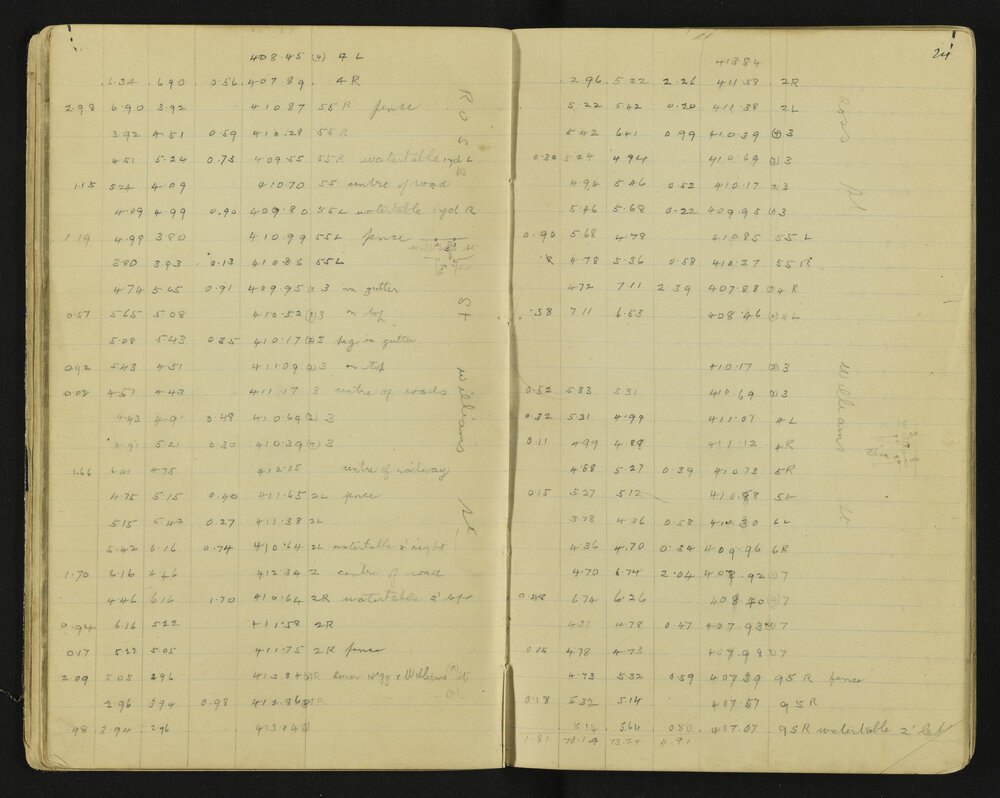 408.45 (4) 4 L
6.34 6.90 0.56 407.89 4R
2.98 6.90 3.92 410.87 55 R fence
3.92 4.51 0.59 410.28 55 R
4.51 5.24 0.73 409.55 55R watertable 1yd L
1.15 5.24 4.09 410.70 55 centre of road
4.09 4.99 0.90 409.80 55L watertable 1 yd R
1.19 4.99 3.80 410.99 55L fence
3.80 3.93 0.13 410.86 55L
4.74 5.65 0.91 409.95 3 in gutter
0.57 5.65 5.08 410.52 3 on top
5.08 5.43 0.35 410.17 3 peg in gutter
0.92 5.43 4.51 411.09 3 on top
0.08 4.51 4.43 411.17 3 centre of roads
4.43 4.91 0.48 410.69 3
4.91 5.21 0.30 410.39 (4) 3
1.66 6.41 4.75 412.05 centre of railway
4.75 5.15 0.40 411.65 2L fence
5.15 5.42 0.27 411.38 2L
5.42 6.16 0.74 410.64 2L watertable 2' right
1.70 6.16 4.46 412.34 2 centre of road
4.46 6.16 1.70 410.64 2R watertable 2'
0.94 6.16 5.22 411.58 2R
0.17 5.22 5.05 411.75 2R fence
2.09 5.05 2.96 Williams St
2.96 3.94 0.98 412.86
.98 3.94 2.96 413.84
Ross St
Williams St
24
413.84
2.96 5.22 2.26 411.58 2R
5.22 5.42 0.20 411.38 2L
5.42 6.41 0.99 410.39 (4) 3
0.30 5.24 4.94 410.69 3
4.94 5.46 0.52 410.17 3
5.46 5.68 0.22 409.95 3
0.90 5.68 4.78 410.85 55 L
4.78 5.36 0.58 410.27 55 R
4.72 7.11 2.39 407.88 4 R
.58 7.11 6.53 408.46 4L
410.17 (2) 3
0.52 5.83 5.31 410.69 3
0.32 5.31 4.99 411.01 4L
0.11 4.99 4.88 411.12 4R
4.88 5.27 0.39 410.73 5R
0.15 5.27 5.12 410.88 5L
3.78 4.36 0.58 410.30 6L
4.36 4.70 0.34 409.96 6R
4.70 6.74 2.04 407.92 7
0.48 6.74 6.26 408.40 7
4.31 4.78 0.47 407.93 7
0.05 4.78 4.73 407.98 7
4.73 5.32 0.59 407.39 95 R fence
0.18 5.32 5.14 407.57 95 R
5.14 5.64 0.50 407.07 95R watertable 2' left
1.81 70.14 73.24 4.91
Ross St
Williams St